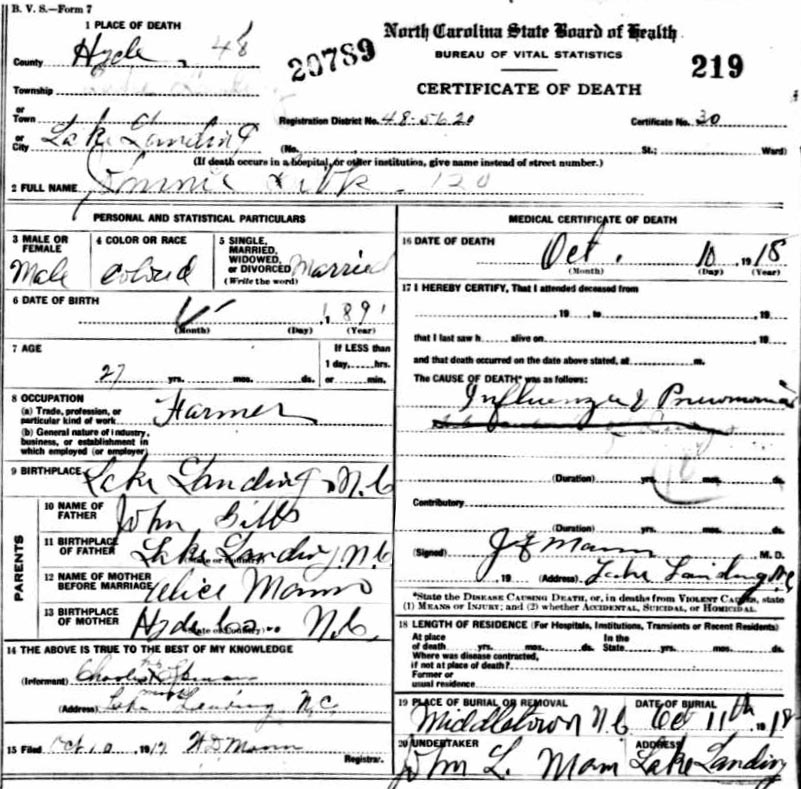 B. V. S.—Form 7
1 PLACE OF DEATH
County Hyde, 48
20789
North Carolina State Board of Health
BUREAU OF VITAL STATISTICS
219
CERTIFICATE OF DEATH
Township Lake Landing
or
Town
or
City Lake Landing
Registration District No. 48-5620 Certificate No. 30
(No. St.; Ward)
(If death occurs in a hospital, or other institution, give name instead of street number.)
2 FULL NAME
PERSONAL AND STATISTICAL PARTICULARS
3 MALE OR FEMALE
Male
4 COLOR OR RACE
Colored
5 SINGLE, MARRIED, WIDOWED, or DIVORCED
(Write the word)
Married
6 DATE OF BIRTH
(Month) (Day) 1891 (Year)
7 AGE
27 yrs. mos. ds.
If LESS than
1 day, hrs.
or min.
8 OCCUPATION
(a) Trade, profession, or particular kind of work Farmer
(b) General nature of industry, business, or establishment in which employed (or employer)
9 BIRTHPLACE Lake Landing N.C
PARENTS
10 NAME OF FATHER John Gibbs
11 BIRTHPLACE OF FATHER Lake Landing N.C
(State or Country)
12 NAME OF MOTHER BEFORE MARRIAGE Alice Mann
13 BIRTHPLACE OF MOTHER Hyde Co. N.C.
(State or Country)
14 THE ABOVE IS TRUE TO THE BEST OF MY KNOWLEDGE
(Informant) Charles
(Address) Lake Landing N.C.
15 Filed Oct 10 191 Mann
Registrar.
MEDICAL CERTIFICATE OF DEATH
16 DATE OF DEATH
Oct. 10 1918
(Month) (Day) (Year)
17 I HEREBY CERTIFY, That I attended deceased from
, 19 , to , 19 ,
that I last saw h alive on , 19 ,
and that death occurred on the date above stated, at m.
The CAUSE OF DEATH* was as follows:
Influenza & Pneumonia
(Duration) yrs. mos. ds.
Contributory
(Duration) yrs. mos. ds.
(Signed) J E Mann M. D.
, 19 (Address) Lake Landing N.C
*State the DISEASE CAUSING DEATH, or, in deaths from VIOLENT CAUSES, state
(1) MEANS OF INJURY; and (2) whether ACCIDENTAL, SUICIDAL, or HOMICIDAL.
18 LENGTH OF RESIDENCE (For Hospitals, Institutions, Transients or Recent Residents)
At place of death yrs. mos. ds. In the State yrs. mos. ds.
Where was disease contracted,
if not at place of death?
Former or
usual residence
19 PLACE OF BURIAL OR REMOVAL
Middletown N.C
DATE OF BURIAL
Oct 11th 1918
20 UNDERTAKER
John L. Mann
ADDRESS
Lake Landing